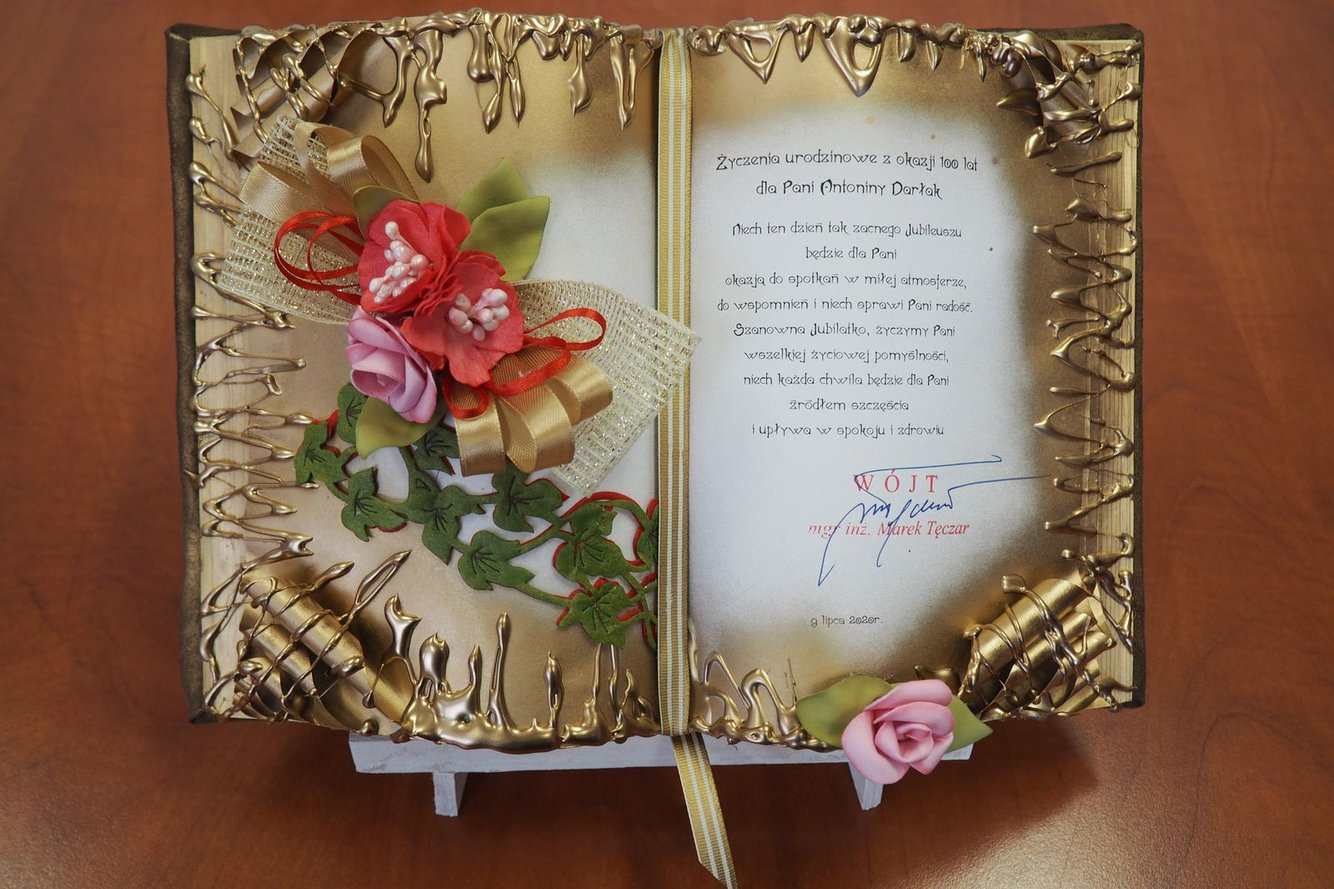 Życzenia urodzinowe z okazji 100 lat
dla Pani Antoniny Darłak
Niech ten dzień tak zacnego Jubileuszu
będzie dla Pani
okazją do spotkań w miłej atmosferze,
do wspomnień i niech sprawi Pani radość.
Szanowna Jubilatko, życzymy Pani
wszelkiej życiowej pomyślności,
niech każda chwila będzie dla Pani
źródłem szczęścia
i upływa w spokoju i zdrowiu
WÓJT
mgr inż. Marek Tęczar
9 lipca 2020r.